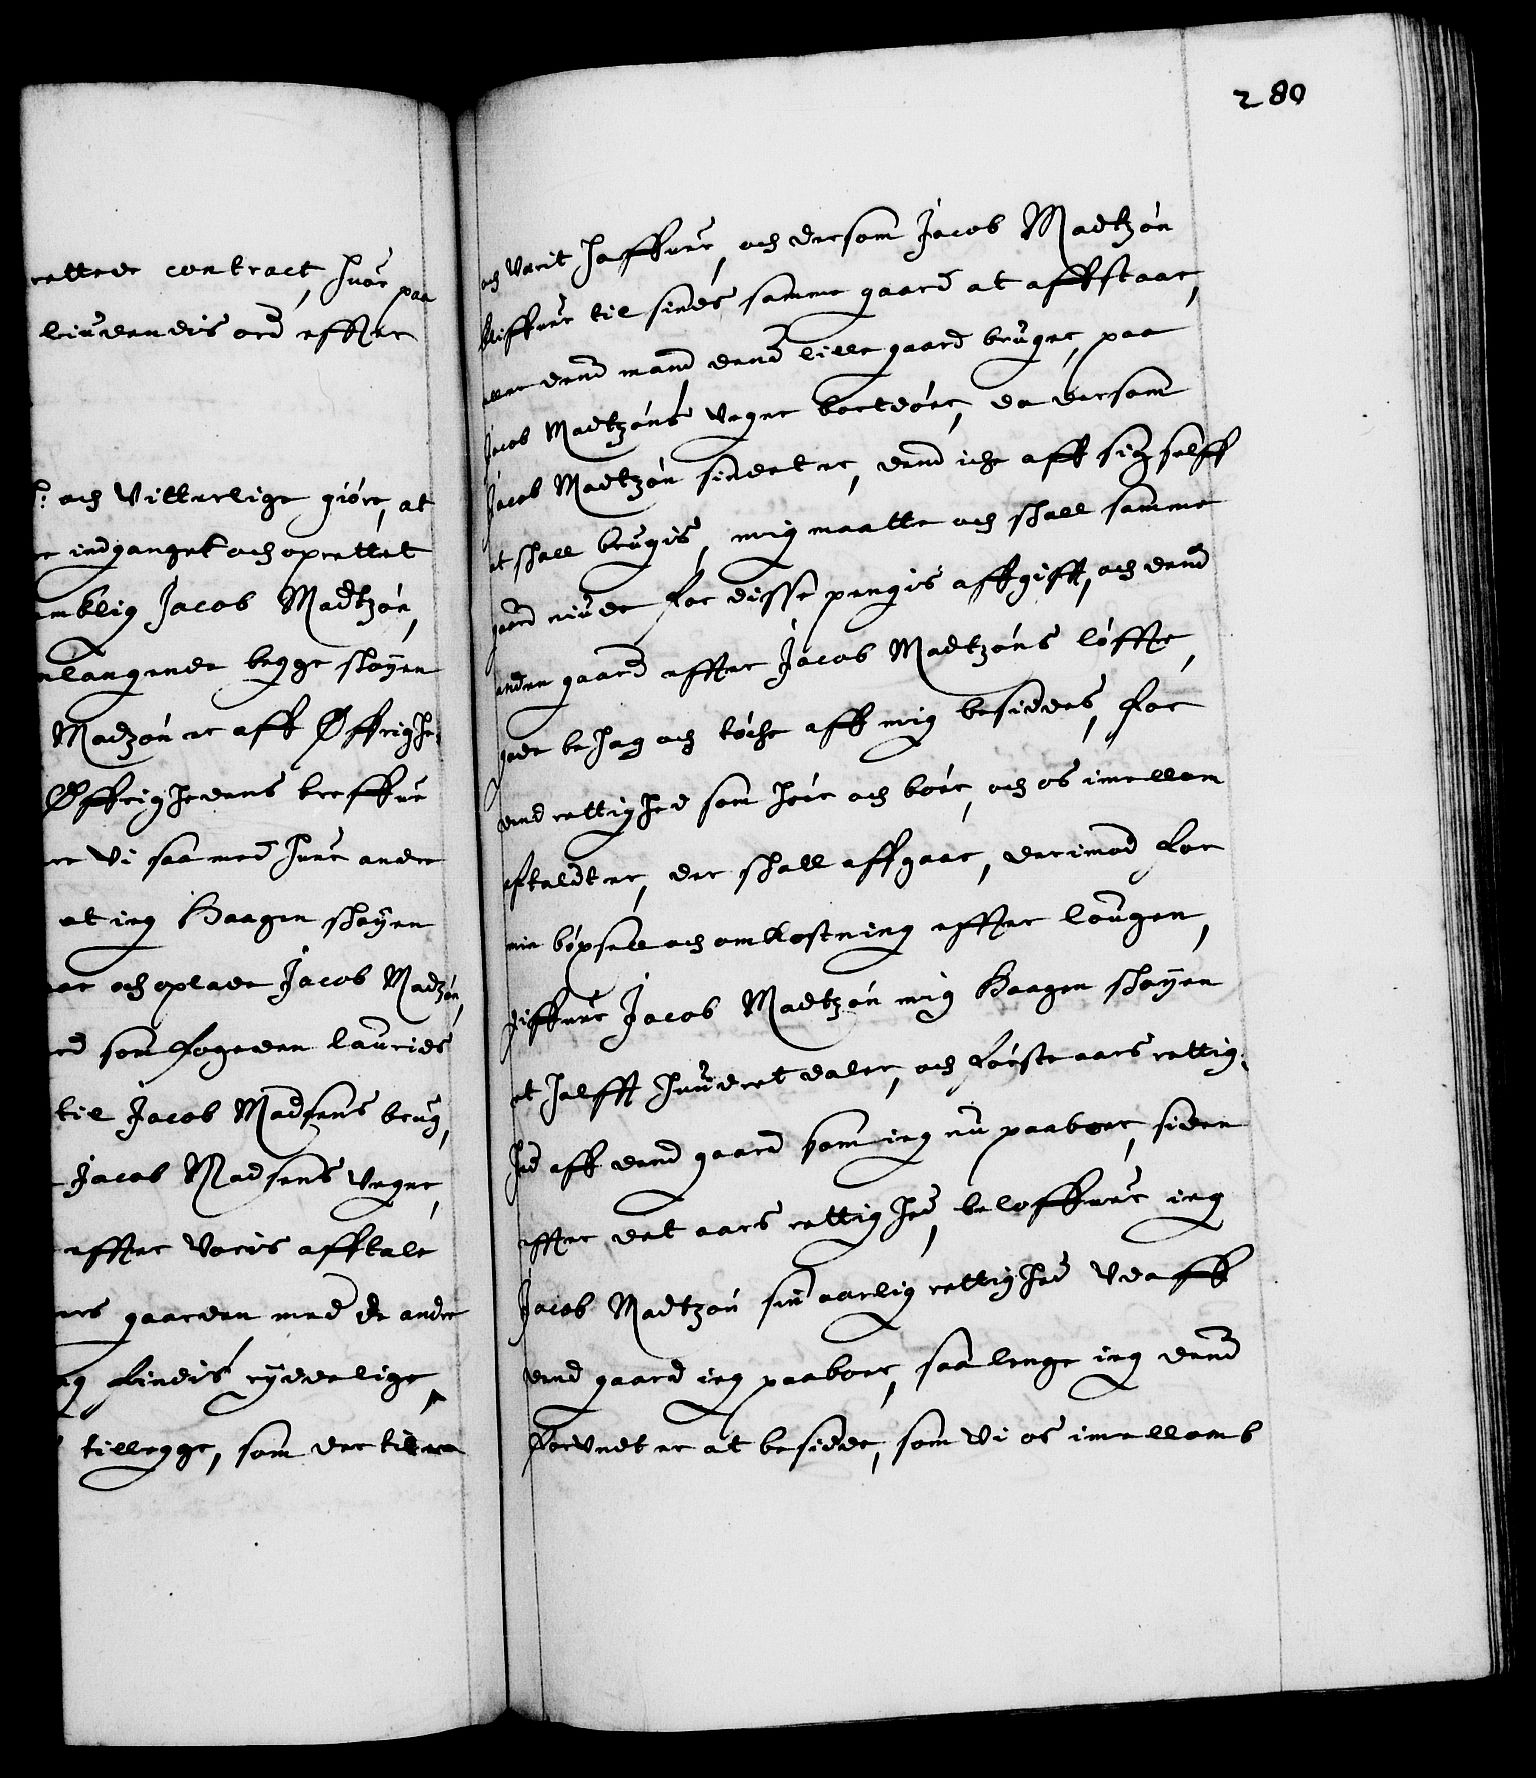 rettede contract, huor paa
liudendis ord effter
och Vitterlige giöre, at
indganget och oprettet
Jacob Madtzön,
anlangende begge skøyen
Madzön er aff Øffrighe
Øffrighedens breffue
Vi saa med huer andre
at ieg Haagen skøyen
och oplade Jacob Madzön,
som fogeden laurids
til Jacob Madsens brug,
Jacob Madsens Vegne,
effter Voris afftale
gaarden med de andre
findis nyderlige,
tillegge, som der til
280
och Verit haffuer, och dersom Jacob Madtzön
bliffuer til sinds samme gaard at affstaae,
eller dend mand dend lille gaard bruger, paa
Jacob Madtzöns Vegne bortdöer, da dersom
Jacob Madtzön sindet er, dend iche aff sig selff
at skall brugis, mig maatte och skall samme
gaard niude for disse pengis affgifft, och dend
anden gaard effter Jacob Madtzöns löffte,
gode behag och töche aff mig besiddes, for
dend rettighed som hör och bör, och os imellem
aftaldt er, der skall affgaae, derimod for
min böxsell och omkostning effter lougen,
giffuer Jacob Madtzön mig Haagen skøyen
et halfft hundret daler, och förste aars rettig-
hed aff dend gaard som ieg nu paaboer, siden
effter det aars rettighed, beloffuer ieg
Jacob Madtzön sin aarlig rettighed Vdaff
dend gaard ieg paaboer, saa lenge ieg dend
forundt er at besidde, som Vi os imellomb